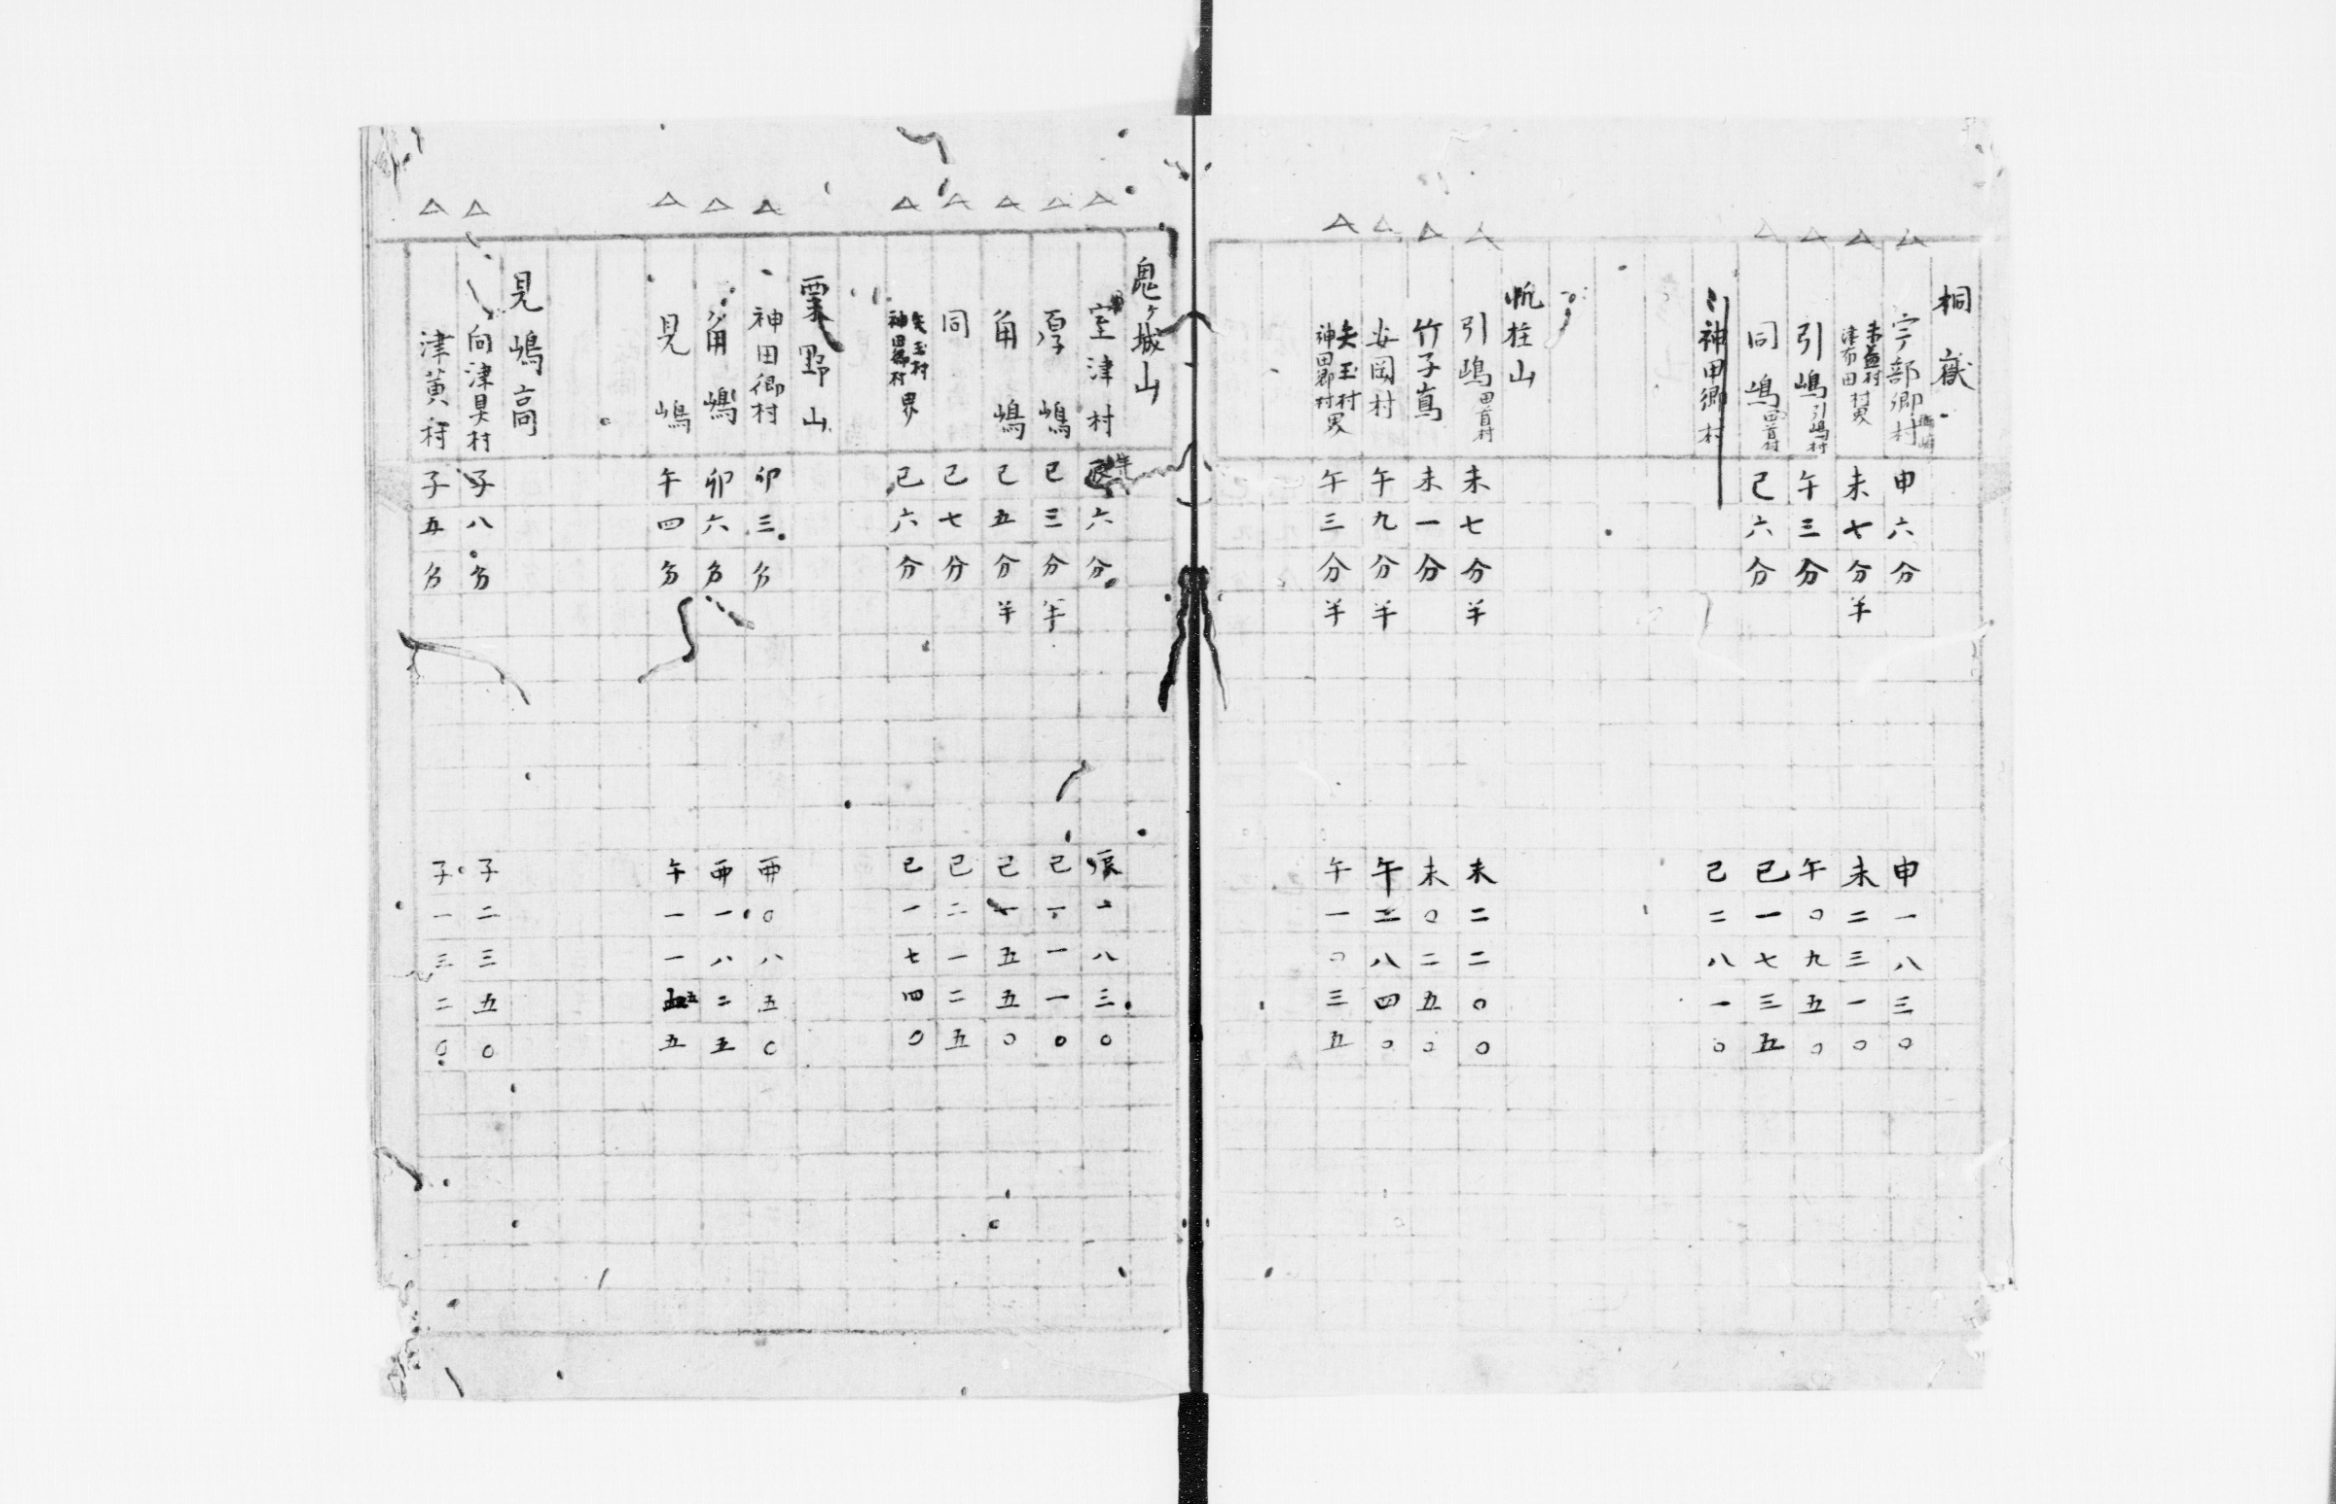 桐嶽
宇部郷村 申六分 申一八三〇
津布田村界 未七分半 未二三一〇
引嶋引嶋村 午三分 午〇九五〇
同嶋田首村 巳六分 巳一七三五
神田郷村 巳二八一〇
帆柱山
引嶋田首村 未七分半 未二二〇〇
竹子嶌 未一分 未〇二五〇
安岡村 午九分半 午二八四〇
矢玉村神田郷村界 午三分半 午一〇三五
鬼ヶ城山
室津村 辰六分 辰一八三〇
厚嶋 巳三分半 巳一一一〇
角嶋 巳五分半 巳一五五〇
同 巳七分 巳二一二五
矢玉村神田郷村界 巳六分 巳一七四〇
粟野山
神田郷村 卯三分 酉〇八五〇
角嶋 卯六分 酉一八二五
見嶋 午四分 午一一五五
見嶋高
向津具村 子八分 子二三五〇
津黄村 子五分 子一三二〇